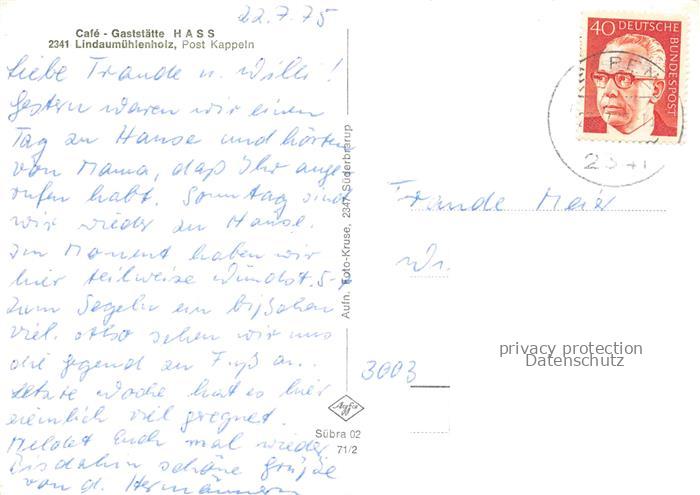 22.7.75
Café - Gaststätte HASS
2341 Lindaumühlenholz, Post Kappeln
Liebe Traude u. Willi!
Gestern waren wir einen
Tag zu Hause und hörten
von Mama, daß Ihr ange
rufen habt. Sonntag sind
wir wieder zu Hause.
Im Moment haben wir
hier teilweise Windst. 5-
zum Segeln ein bißchen
viel. Also sehen wir uns
die Gegend zu Fuß an.
Letzte Woche hat es hier
ziemlich viel geregnet.
Meldet Euch mal wieder
Bis dahin schöne Grüße
von d. Hermännern
Aufn. Foto-Kruse, 2347 Süderbrarup
Agfa
Sübra 02
71/2
40 DEUTSCHE
BUNDESPOST
2341
Traude Meier
3003
privacy protection
Datenschutz